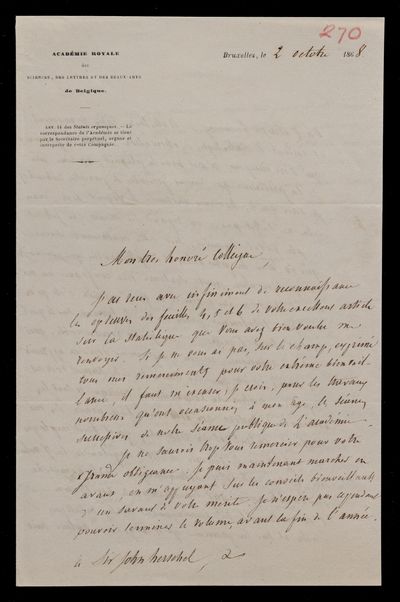 270
ACADÉMIE ROYALE
des
SCIENCES, DES LETTRES ET DES BEAUX-ARTS
de Belgique.
ART. 11 des Statuts organiques. — La
correspondance de l'Académie se tient
par le Secrétaire perpétuel, organe et
interprète de cette Compagnie.
Bruxelles, le 2 octobre 1868.
Mon très honoré Collègue,
J'ai reçu avec infiniment de reconnaissance
les épreuves des feuilles 4, 5 et 6 de votre excellent article
sur la statistique que vous avez bien voulu me
renvoyer. Si je ne vous ai pas, sur le champ, exprimé
tous mes remerciements pour votre extrême bienveil-
lance, il faut m'excuser, je crois, pour les travaux
nombreux qu'ont occasionnés, à mon âge, les séances
successives de notre séance publique de l'académie.
Je ne saurais trop vous remercier pour votre
grande obligeance. Je puis maintenant marcher en
avant, en m'appuyant sur les conseils bienveillants
d'un savant de votre mérite. Je n'espère pas cependant
pouvoir terminer le volume, avant la fin de l'année.
à Sir John Herschel,